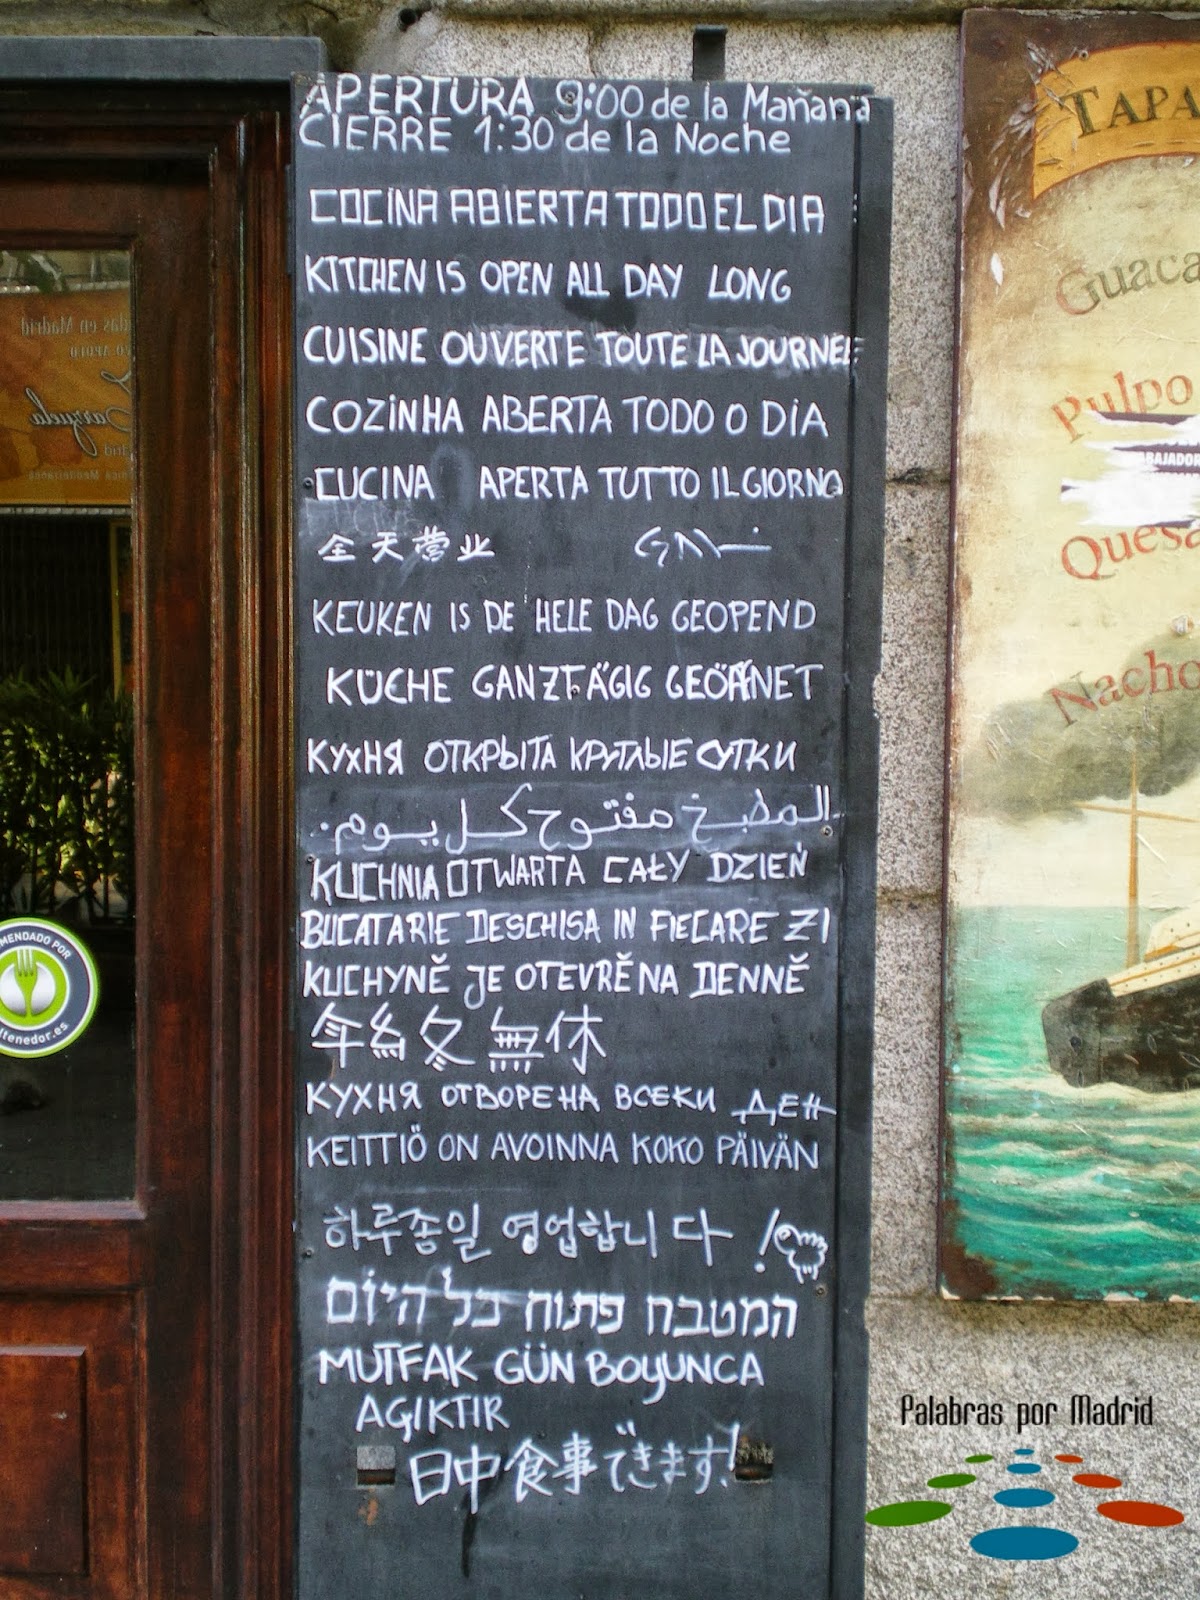 APERTURA 9:00 de la Mañana
CIERRE 1:30 de la Noche
COCINA ABIERTA TODO EL DIA
KITCHEN IS OPEN ALL DAY LONG
CUISINE OUVERTE TOUTE LA JOURNEE
COZINHA ABERTA TODO O DIA
CUCINA APERTA TUTTO IL GIORNO
全天营业
KEUKEN IS DE HELE DAG GEOPEND
KÜCHE GANZTÄGIG GEÖFFNET
КУХНЯ ОТКРЫТА КРУГЛЫЕ СУТКИ
المطبخ مفتوح كل يوم.
KUCHNIA OTWARTA CAŁY DZIEŃ
BUCATARIE DESCHISA IN FIECARE ZI
KUCHYNĚ JE OTEVRĚNA DENNĚ
年終冬無休
КУХНЯ ОТВОРЕНА ВСЕКИ ДЕН
KEITTIÖ ON AVOINNA KOKO PÄIVÄN
하루종일 영업합니다!
המטבח פתוח כל היום
MUTFAK GÜN BOYUNCA
AÇIKTIR
日中食事できます!
TAPA
Guaca
Pulpo
BAJADOR
Quesa
Nacho
MENDADO POR
ltenedor.es
das en Madrid
Zarzuela
Palabras por Madrid